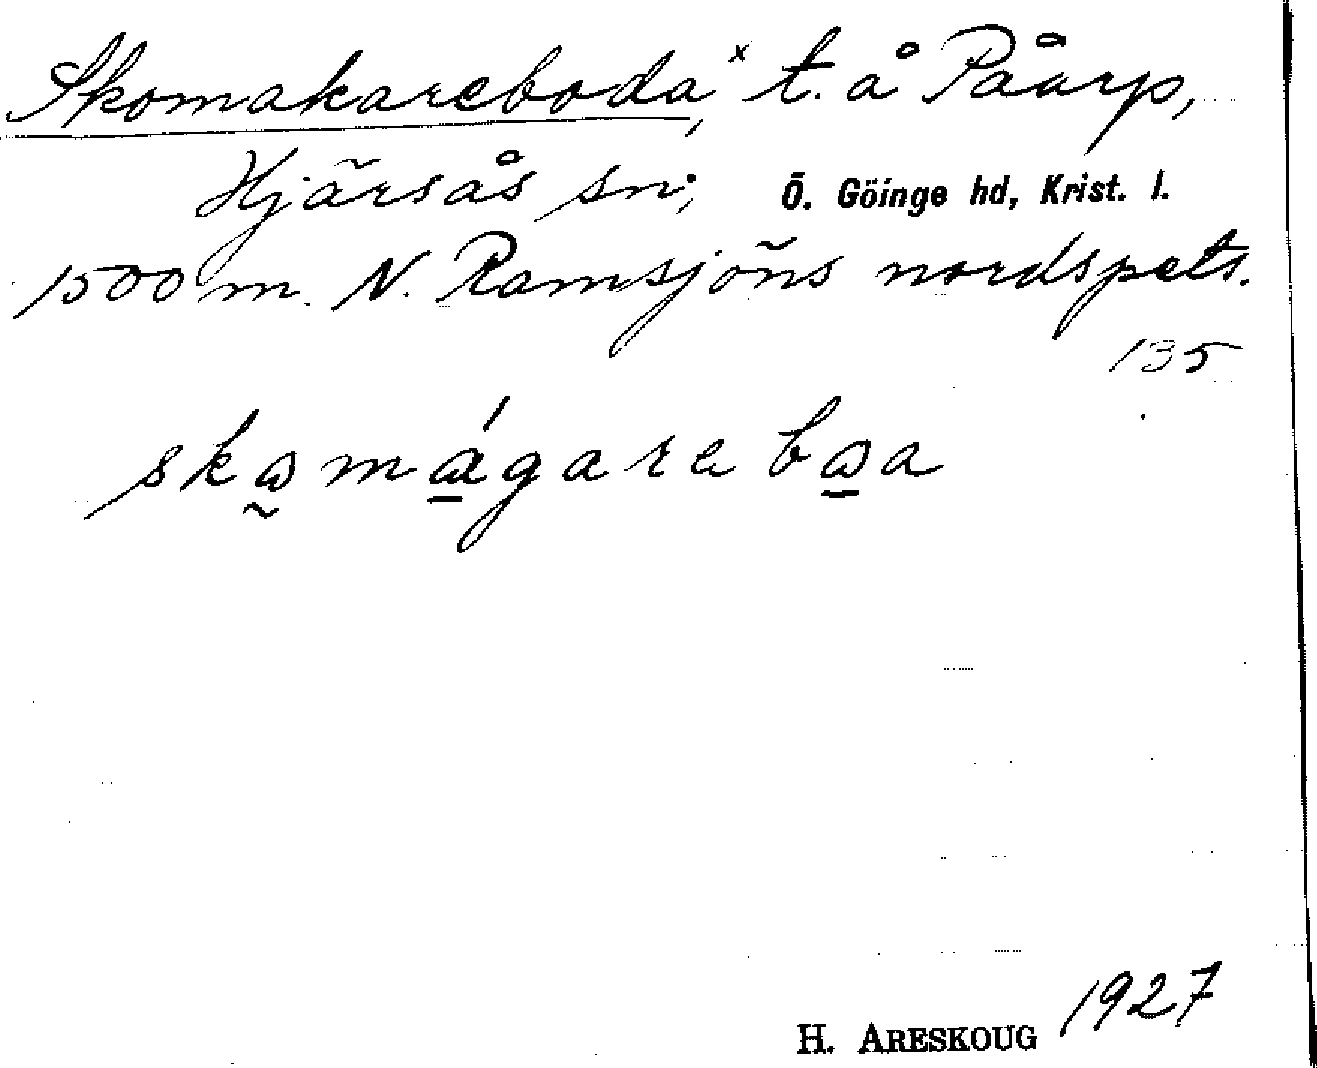 Skomakareboda,ˣ t. å Påarp,
Hjärsås sn; Ö. Göinge hd, Krist. l.
1500 m. N. Ramsjöns nordspets.
135
skωmágarebωa
H. ARESKOUG 1927